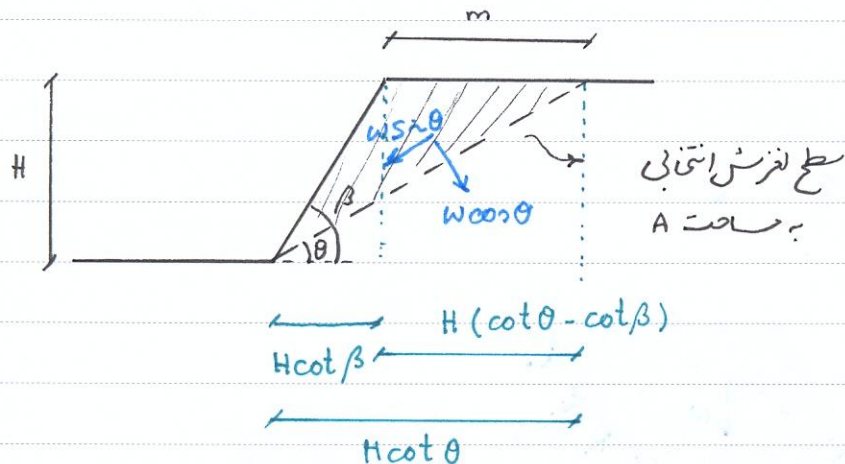 m
H
w sin θ
w cos θ
β
θ
سطح لغزش انتخابی
به مساحت A
H (cot θ - cot β)
H cot β
H cot θ